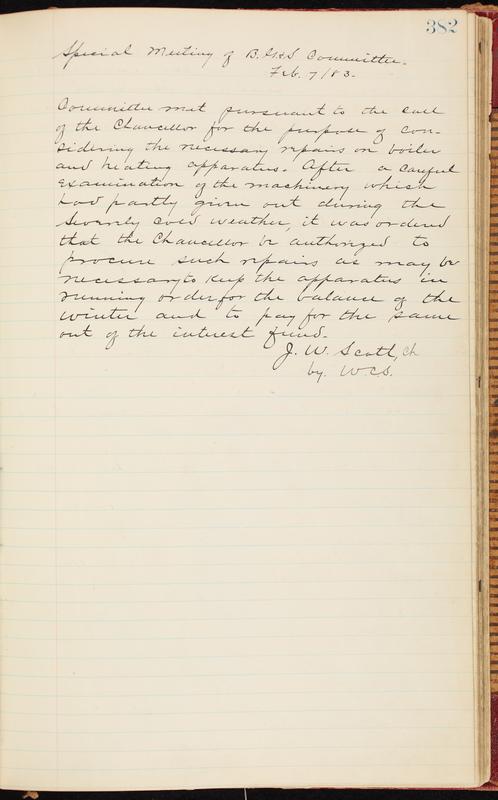 382
Special Meeting of B. G. & S Committee.
Feb. 7/83.
Committee met pursuant to the call
of the Chancellor for the purpose of con-
sidering the necessary repairs on boiler
and heating apparatus. After a careful
examination of the machinery which
had partly given out during the
severely cold weather, it was ordered
that the Chancellor be authorized to
procure such repairs as may be
necessary to keep the apparatus in
running order for the balance of the
winter and to pay for the same
out of the interest fund.
J. W. Scott, Ch
by. W.C.S.